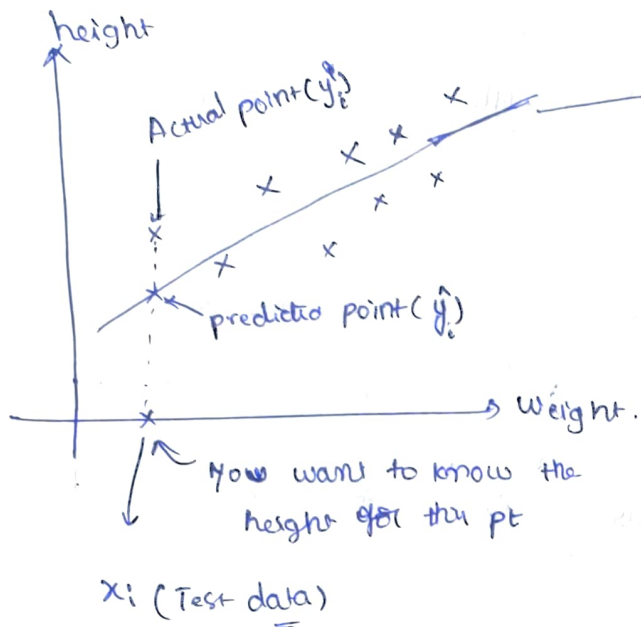 height
Actual point (yᵢ)
predictio point (ŷᵢ)
Weight.
You want to know the
height for this pt
xi (Test data)